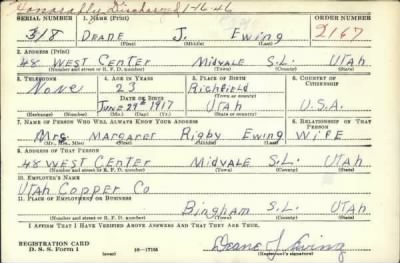 Honorably Discharged 1-16-46
SERIAL NUMBER 1. NAME (Print) ORDER NUMBER
318 DEANE J. EWING 2167
(First) (Middle) (Last)
2. ADDRESS (Print)
48 WEST CENTER MIDVALE S.L. UTAH
(Number and street or R. F. D. number) (Town) (County) (State)
3. TELEPHONE 4. AGE IN YEARS 5. PLACE OF BIRTH 6. COUNTRY OF CITIZENSHIP
NONE 23 RICHFIELD
DATE OF BIRTH (Town or county)
JUNE 29th 1917 UTAH U.S.A.
(Exchange) (Number) (Mo.) (Day) (Yr.) (State or country)
7. NAME OF PERSON WHO WILL ALWAYS KNOW YOUR ADDRESS 8. RELATIONSHIP OF THAT PERSON
MRS. MARGARET RIGBY EWING WIFE
(Mr., Mrs., Miss) (First) (Middle) (Last)
9. ADDRESS OF THAT PERSON
48 WEST CENTER MIDVALE S.L. UTAH
(Number and street or R. F. D. number) (Town) (County) (State)
10. EMPLOYER'S NAME
UTAH COPPER CO
11. PLACE OF EMPLOYMENT OR BUSINESS
BINGHAM S.L. UTAH
(Number and street or R. F. D. number) (Town) (County) (State)
I AFFIRM THAT I HAVE VERIFIED ABOVE ANSWERS AND THAT THEY ARE TRUE.
REGISTRATION CARD
D. S. S. Form 1 (over) 16—17105 Deane J Ewing
(Registrant's signature)